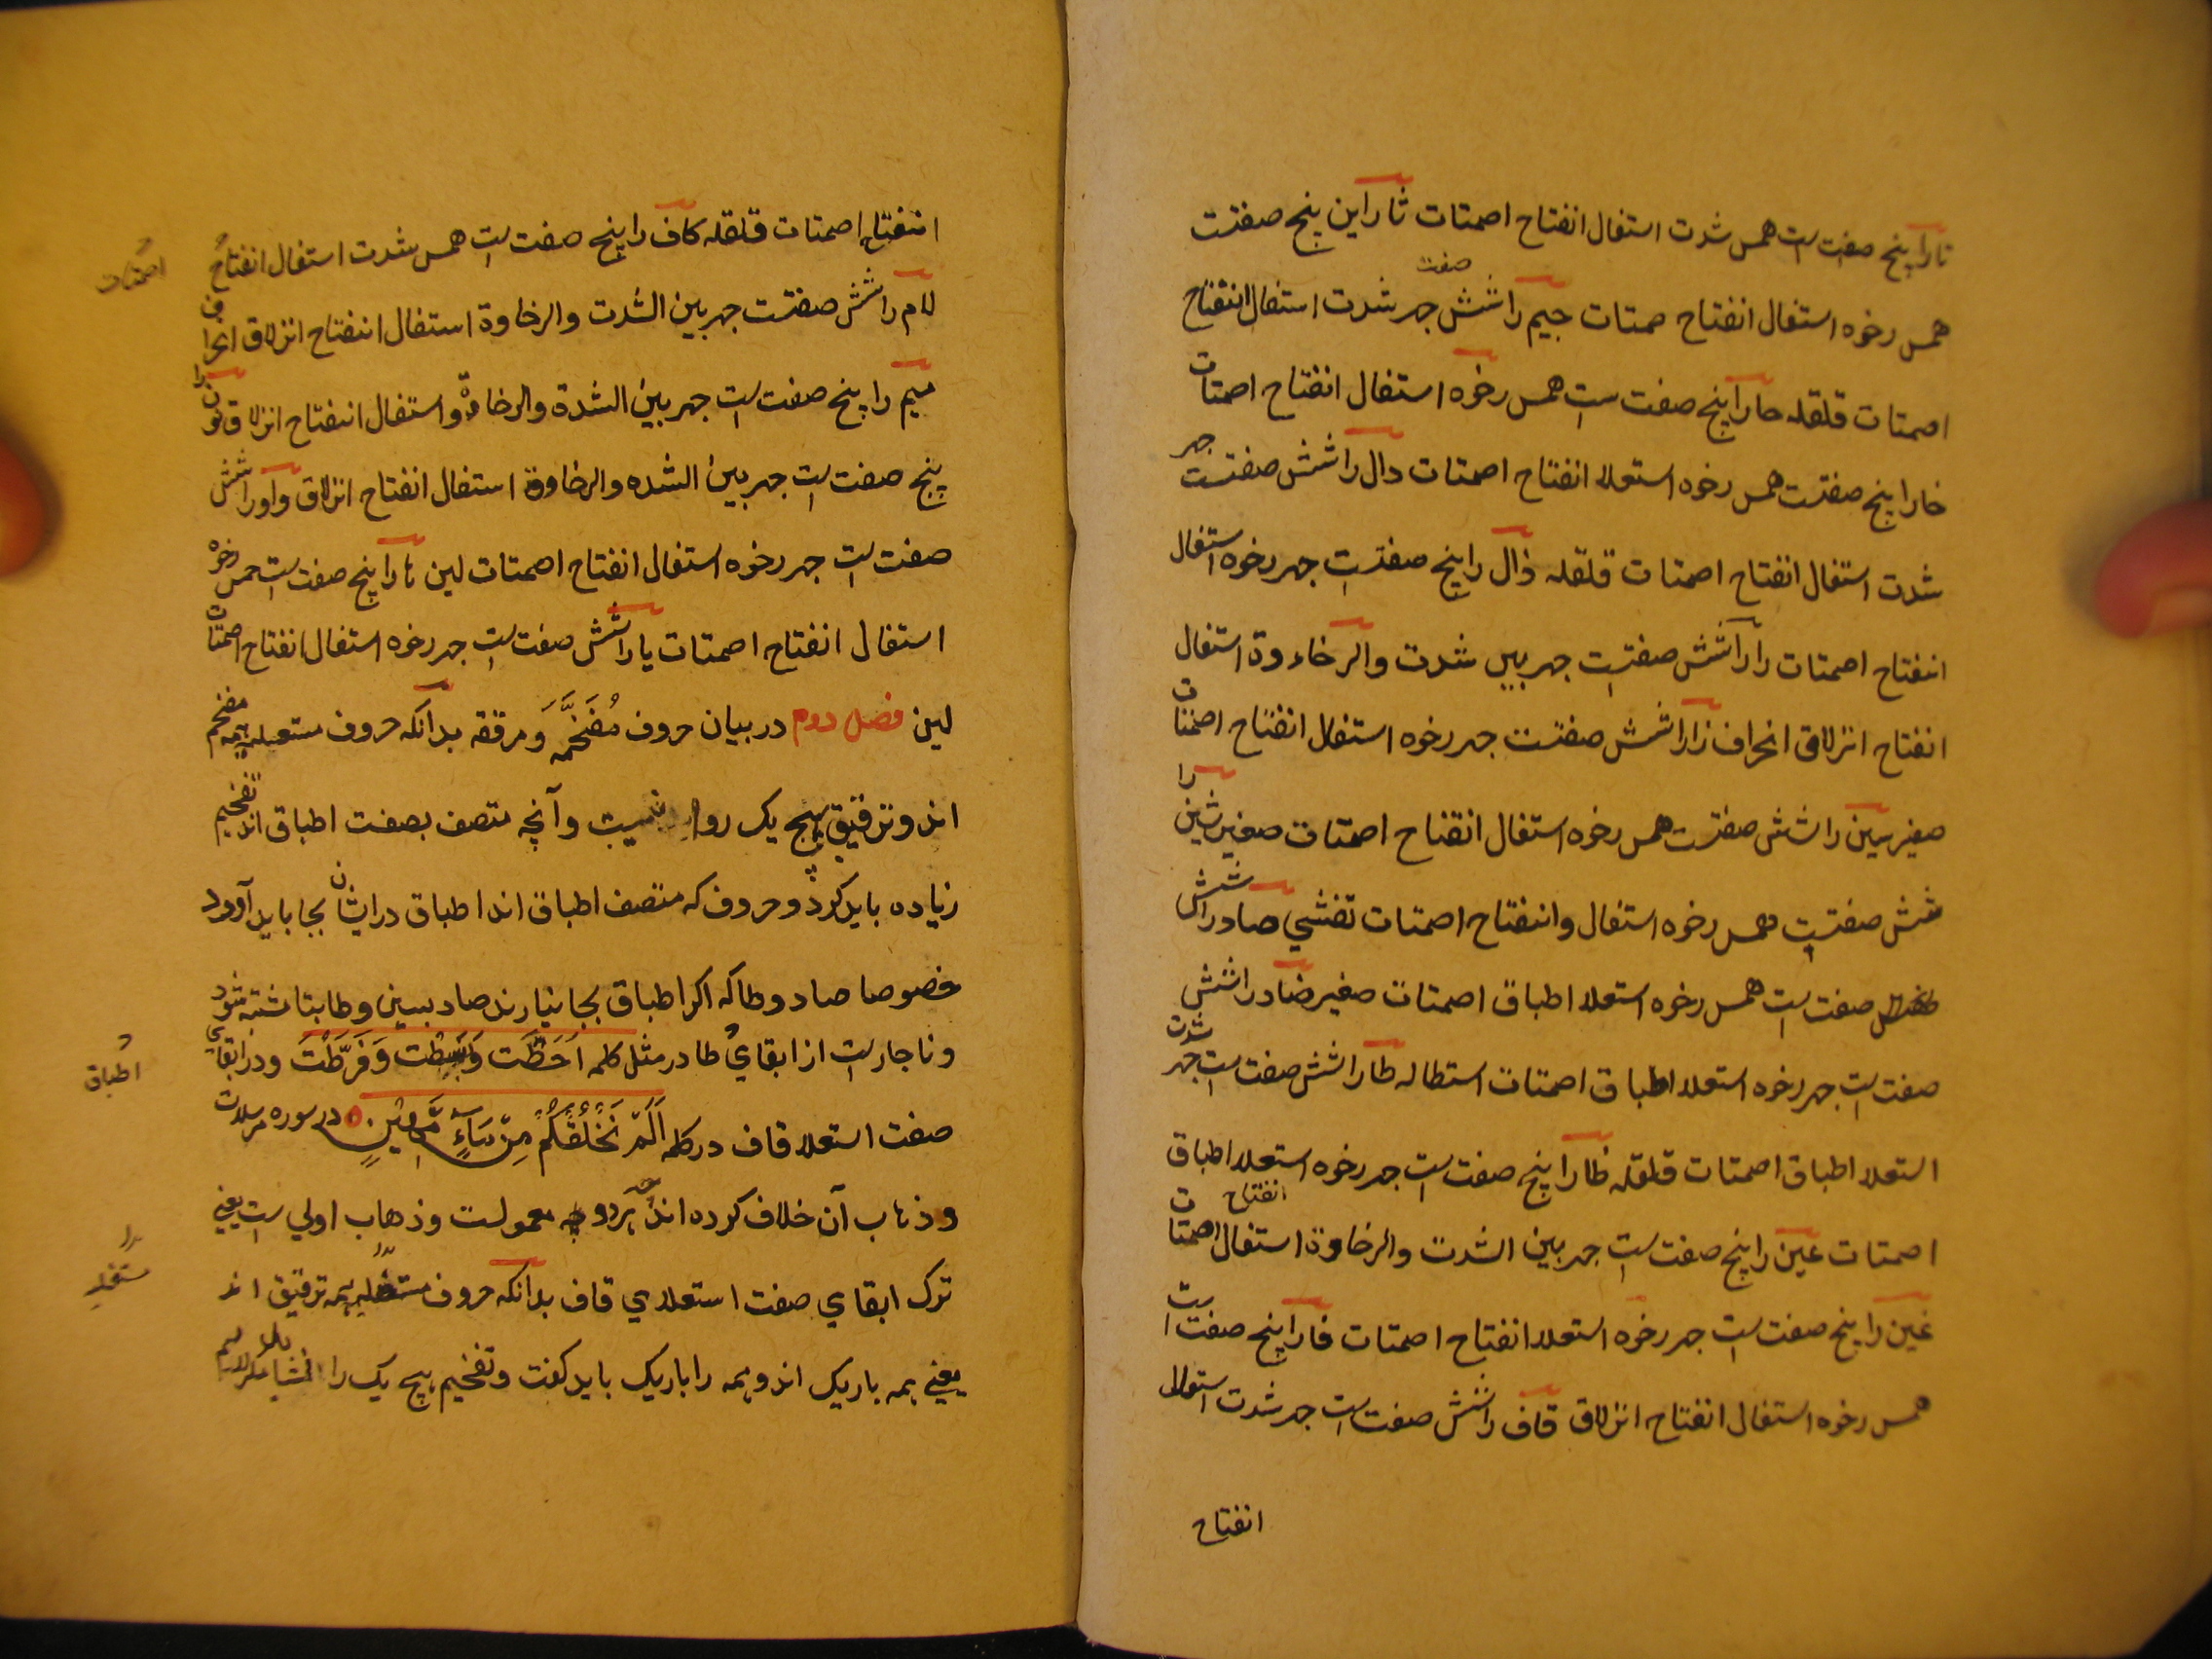 تا را پنج صفت ست همس شدت استفال انفتاح اصمتات ثا را این پنج صفتست
همس رخوه استفال انفتاح صمتات جیم را شش صفت جهر شدت استفال انفتاح
اصمتات قلقله حا را پنج صفت ست همس رخوه استفال انفتاح اصمتات
خا را پنج صفتست همس رخوه استعلا انفتاح اصمتات دال را شش صفتست جهر
شدت استفال انفتاح اصمتات قلقله ذال را پنج صفتست جهر رخوه استفال
انفتاح اصمتات را را شش صفتست جهر بین شدت والرخاءوة استفال
انفتاح انزلاق انحراف زا را شش صفتست جهر رخوه استفال انفتاح اصمتات
صفیر سین را شش صفتست همس رخوه استفال انفتاح اصمتات صفیر شین را
شش صفتست همس رخوه استفال وانفتاح اصمتات تفشي صاد را شش
صفت ست همس رخوه استعلا اطباق اصمتات صفیر ضاد را شش
صفت ست جهر رخوه استعلا اطباق اصمتات استطاله طا را شش صفت ست جهر شدت
استعلا اطباق اصمتات قلقله ظا را پنج صفت ست جهر رخوه استعلا اطباق
اصمتات عین را پنج صفت ست جهر بین الشدت والرخاوة استفال انفتاح اصمتات
غین را پنج صفت ست جهر رخوه استعلا انفتاح اصمتات فا را پنج صفت ست
همس رخوه استفال انفتاح انزلاق قاف را شش صفت ست جهر شدت استعلا
انفتاح
انفتاح اصمتات قلقله کاف را پنج صفت ست همس شدت استفال انفتاح
اصمتات
لام را شش صفتست جهر بین الشدت والرخاوة استفال انفتاح انزلاق انحراف
میم را پنج صفت ست جهر بین الشدة والرخاوة واستفال انفتاح انزلاق نون را
پنج صفت ست جهر بین الشده والرخاوة استفال انفتاح انزلاق واو را شش
صفت ست جهر رخوه استفال انفتاح اصمتات لین ها را پنج صفت ست همس رخوه
استفال انفتاح اصمتات یا را شش صفت ست جهر رخوه استفال انفتاح اصمتات
لین فصل دوم در بیان حروف مُفَخَّمَه وَ مرققه بدانکه حروف مستعلیه همه مفخم
اند وترقیق هیچ یک روا نیست وآنچه متصف بصفت اطباق اند تفخیم
زیاده باید کرد وحروف که متصف اطباق اند اطباق در ایشان بجا باید آورد
خصوصا صاد وطا که اکر اطباق بجا نیارند صاد بسین وطا بتا مشتبه شود
وناچارست از ابقايُ طا در مثل کلمه اَحَطْتَ وَبَسَطْت وَفَرَّطْتَ ودر ابقاي
اطباق
صفت استعلا قاف در کلمه اَلَمْ نَخْلُقْکُمْ مِنْ مَاءٍ مَهِیْنٍ در سوره مرسلات
وذهاب آن خلاف کرده اند هر دو وجه معمولست وذهاب اولي ست یعني
ترک ابقاي صفت استعلاي قاف بدانکه حروف مستفله همه ترقیق اند
مستفله
یعني همه باریک اند وهمه را باریک باید کفت وتفخیم هیچ یک را